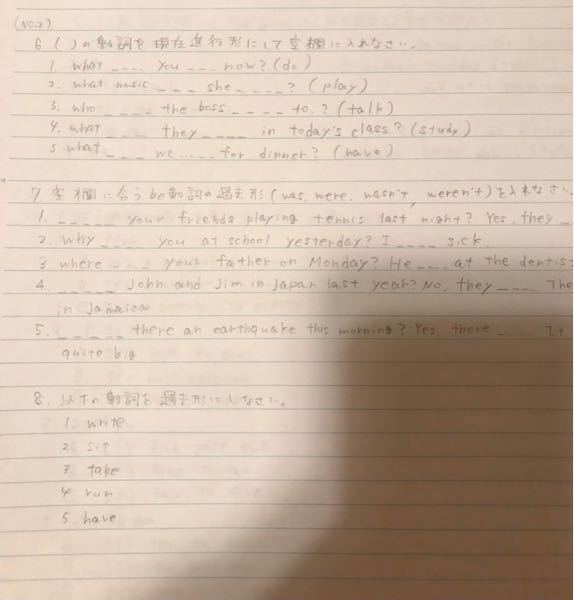 (NO.2)
6 ( )の動詞を現在進行形にして空欄に入れなさい。
1. what ____ you ____ now? (do)
2. what music ____ she ____? (play)
3. who ____ the boss ____ to.? (talk)
4. what ____ they ____ in today's class? (study)
5 what ____ we ____ for dinner? (have)
7. 空欄に合うbe動詞の過去形 (was, were, wasn't, weren't)を入れなさい
1. ____ your friends playing tennis last night? Yes, they __
2. why ____ you at school yesterday? I ____ sick.
3 where ____ your father on Monday? He ____ at the dentis
4 ____ John and Jim in Japan last year? No, they ____ The
in Jamaica
5. ____ there an earthquake this morning? Yes, there ____ It
quite big.
8. 以下の動詞を過去形にしなさい。
1) write
2 sit
3 take
4 run
5 have